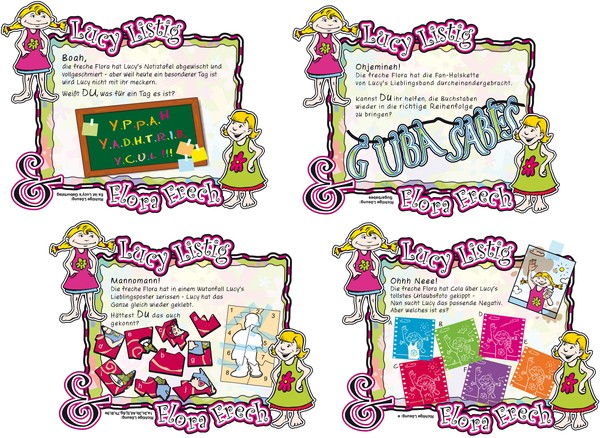 Lucy Listig
Boah,
die freche Flora hat Lucy's Notiztafel abgewischt und
vollgeschmiert - aber weil heute ein besonderer Tag ist
wird Lucy nicht mit ihr meckern.
Weißt DU, was für ein Tag es ist?
Y.P.p.A.H
Y.A.D.H.T.R.I.B.
Y.C.U.L !!!
& Flora Frech
Richtige Lösung:
Es ist Lucy's Geburtstag
Lucy Listig
Ohjemineh!
Die freche Flora hat die Fan-Halskette
von Lucy's Lieblingsband durcheinandergebracht.
Kannst DU ihr helfen, die Buchstaben
wieder in die richtige Reihenfolge
zu bringen?
G UBA SABES
& Flora Frech
Richtige Lösung:
Sugarbabes
Lucy Listig
Mannomann!
Die freche Flora hat in einem Wutanfall Lucy's
Lieblingsposter zerissen - Lucy hat das
Ganze gleich wieder geklebt.
Hättest DU das auch
gekonnt?
& Flora Frech
Richtige Lösung:
Lucy Listig
Ohhh Neee!
Die freche Flora hat Cola über Lucy's
tollstes Urlaubsfoto gekippt -
Nun sucht Lucy das passende Negativ.
Aber welches ist es?
& Flora Frech
Richtige Lösung: